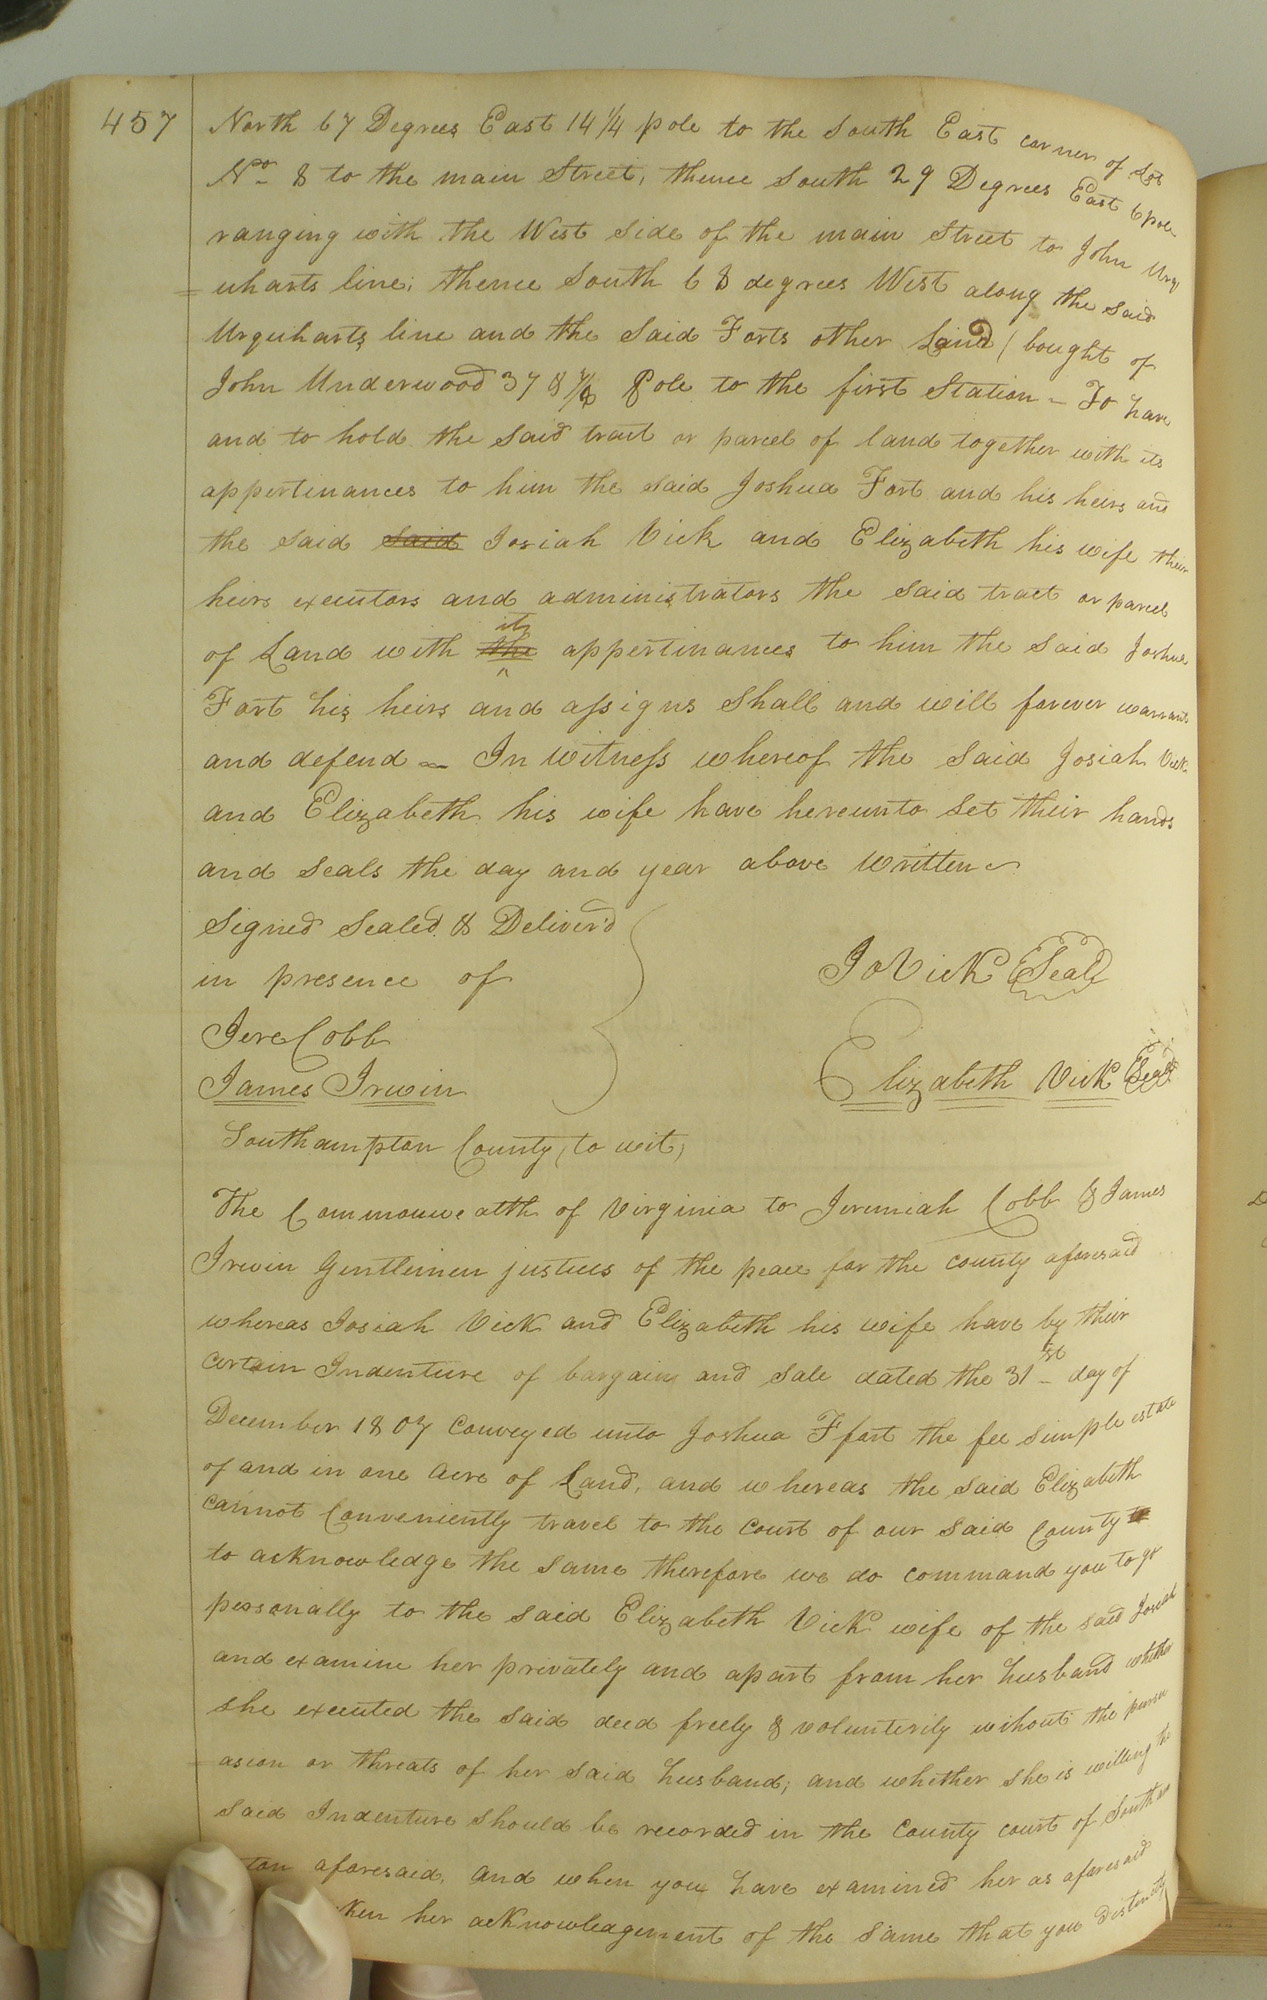 457
North 67 Degrees East 14 1/4 pole to the South East corner of Lot
No. 8 to the main Street, thence South 29 Degrees East 6 pole
ranging with the West Side of the main Street to John Urq
=uharts line; thence South 68 degrees West along the said
Urquharts line and the Said Forts other Land (bought of
John Underwood 37 8 Pole to the first Station - To have
and to hold the said tract or parcel of land together with its
appertinances to him the said Joshua Fort and his heirs and
the said said Josiah Vick and Elizabeth his wife their
heirs executors and administrators the said tract or parcel
of Land with the its appertinances to him the said Joshua
Fort his heirs and assigns Shall and will forever warrant
and defend - In Witness whereof the said Josiah Vick
and Elizabeth his wife have hereunto Set their hands
and Seals the day and year above Written
Signed Sealed & Deliver'd
in presence of
Jo Vick Seal
Jere Cobb
James Irwin
Elizabeth Vick Seal
Southampton County, to wit,
The Commonwealth of Virginia to Jeremiah Cobb & James
Irwin Gentlemen justices of the peace for the county aforesaid
whereas Josiah Vick and Elizabeth his wife have by their
certain Indenture of bargain and Sale dated the 31st day of
December 1807 conveyed unto Joshua Ffort the fee Simple estate
of and in one Acre of Land, and whereas the said Elizabeth
cannot Conveniently travel to the Court of our said County
to acknowledge the Same therefore we do command you to go
personally to the said Elizabeth Vick wife of the said Josiah
and examine her privately and apart from her husband whether
she executed the said deed freely & volunterily wihout the persu
=asion or threats of her said husband; and whether she is willing the
said Indenture should be recorded in the County court of Southam
ton aforesaid, and when you have examined her as aforesaid
ken her acknowledgement of the Same that you distinctly